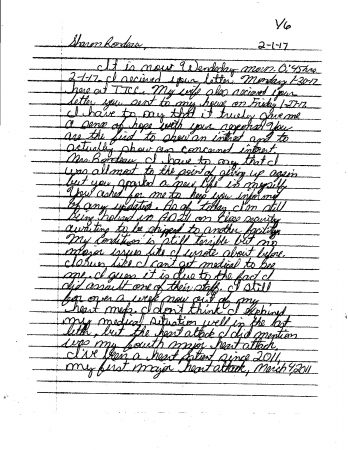 V6
Sharon Rondeau, 2-1-17
It is now Wenesday morn. 0:45 hrs.
2-1-17. I recived your letter Monday 1-30-17
here at TTCC. My wife also recived your
letter you sent to my home on Friday 1-27-17
I have to say that it truely give me
a sense of hope with your response. You
are the first to show an intrest and to
actually show a concerned interest.
Mrs. Rondeau, I have to say that I
was allmost to the point of giving up again
but you sparked a new life in myself.
You asked for me to keep you informed
of any updates. As of today I'm still
being housed in AD on max security
awaiting to be shiped to another facility.
My condition is still terrible but no
major issues like I wrote about before.
It's like I can't get medical to see
me. I guess it is due to the fact I
did assault one of their staff. I still
for over a week now out of my
heart meds. I don't think I explained
my medical situation well in the last
letter but the heart attack I did mention
was my fourth major heart attack.
I've been a heart patient since 2011,
my first major heart attack, March 4, 2011